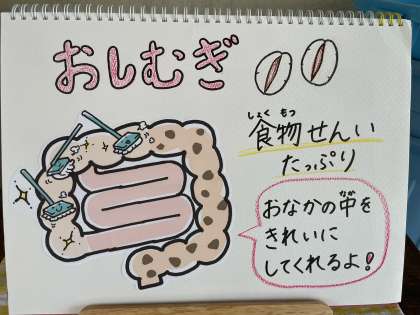 おしむぎ
しょくもつ
食物せんい
たっぷり
おなかの中を
きれいに
してくれるよ！